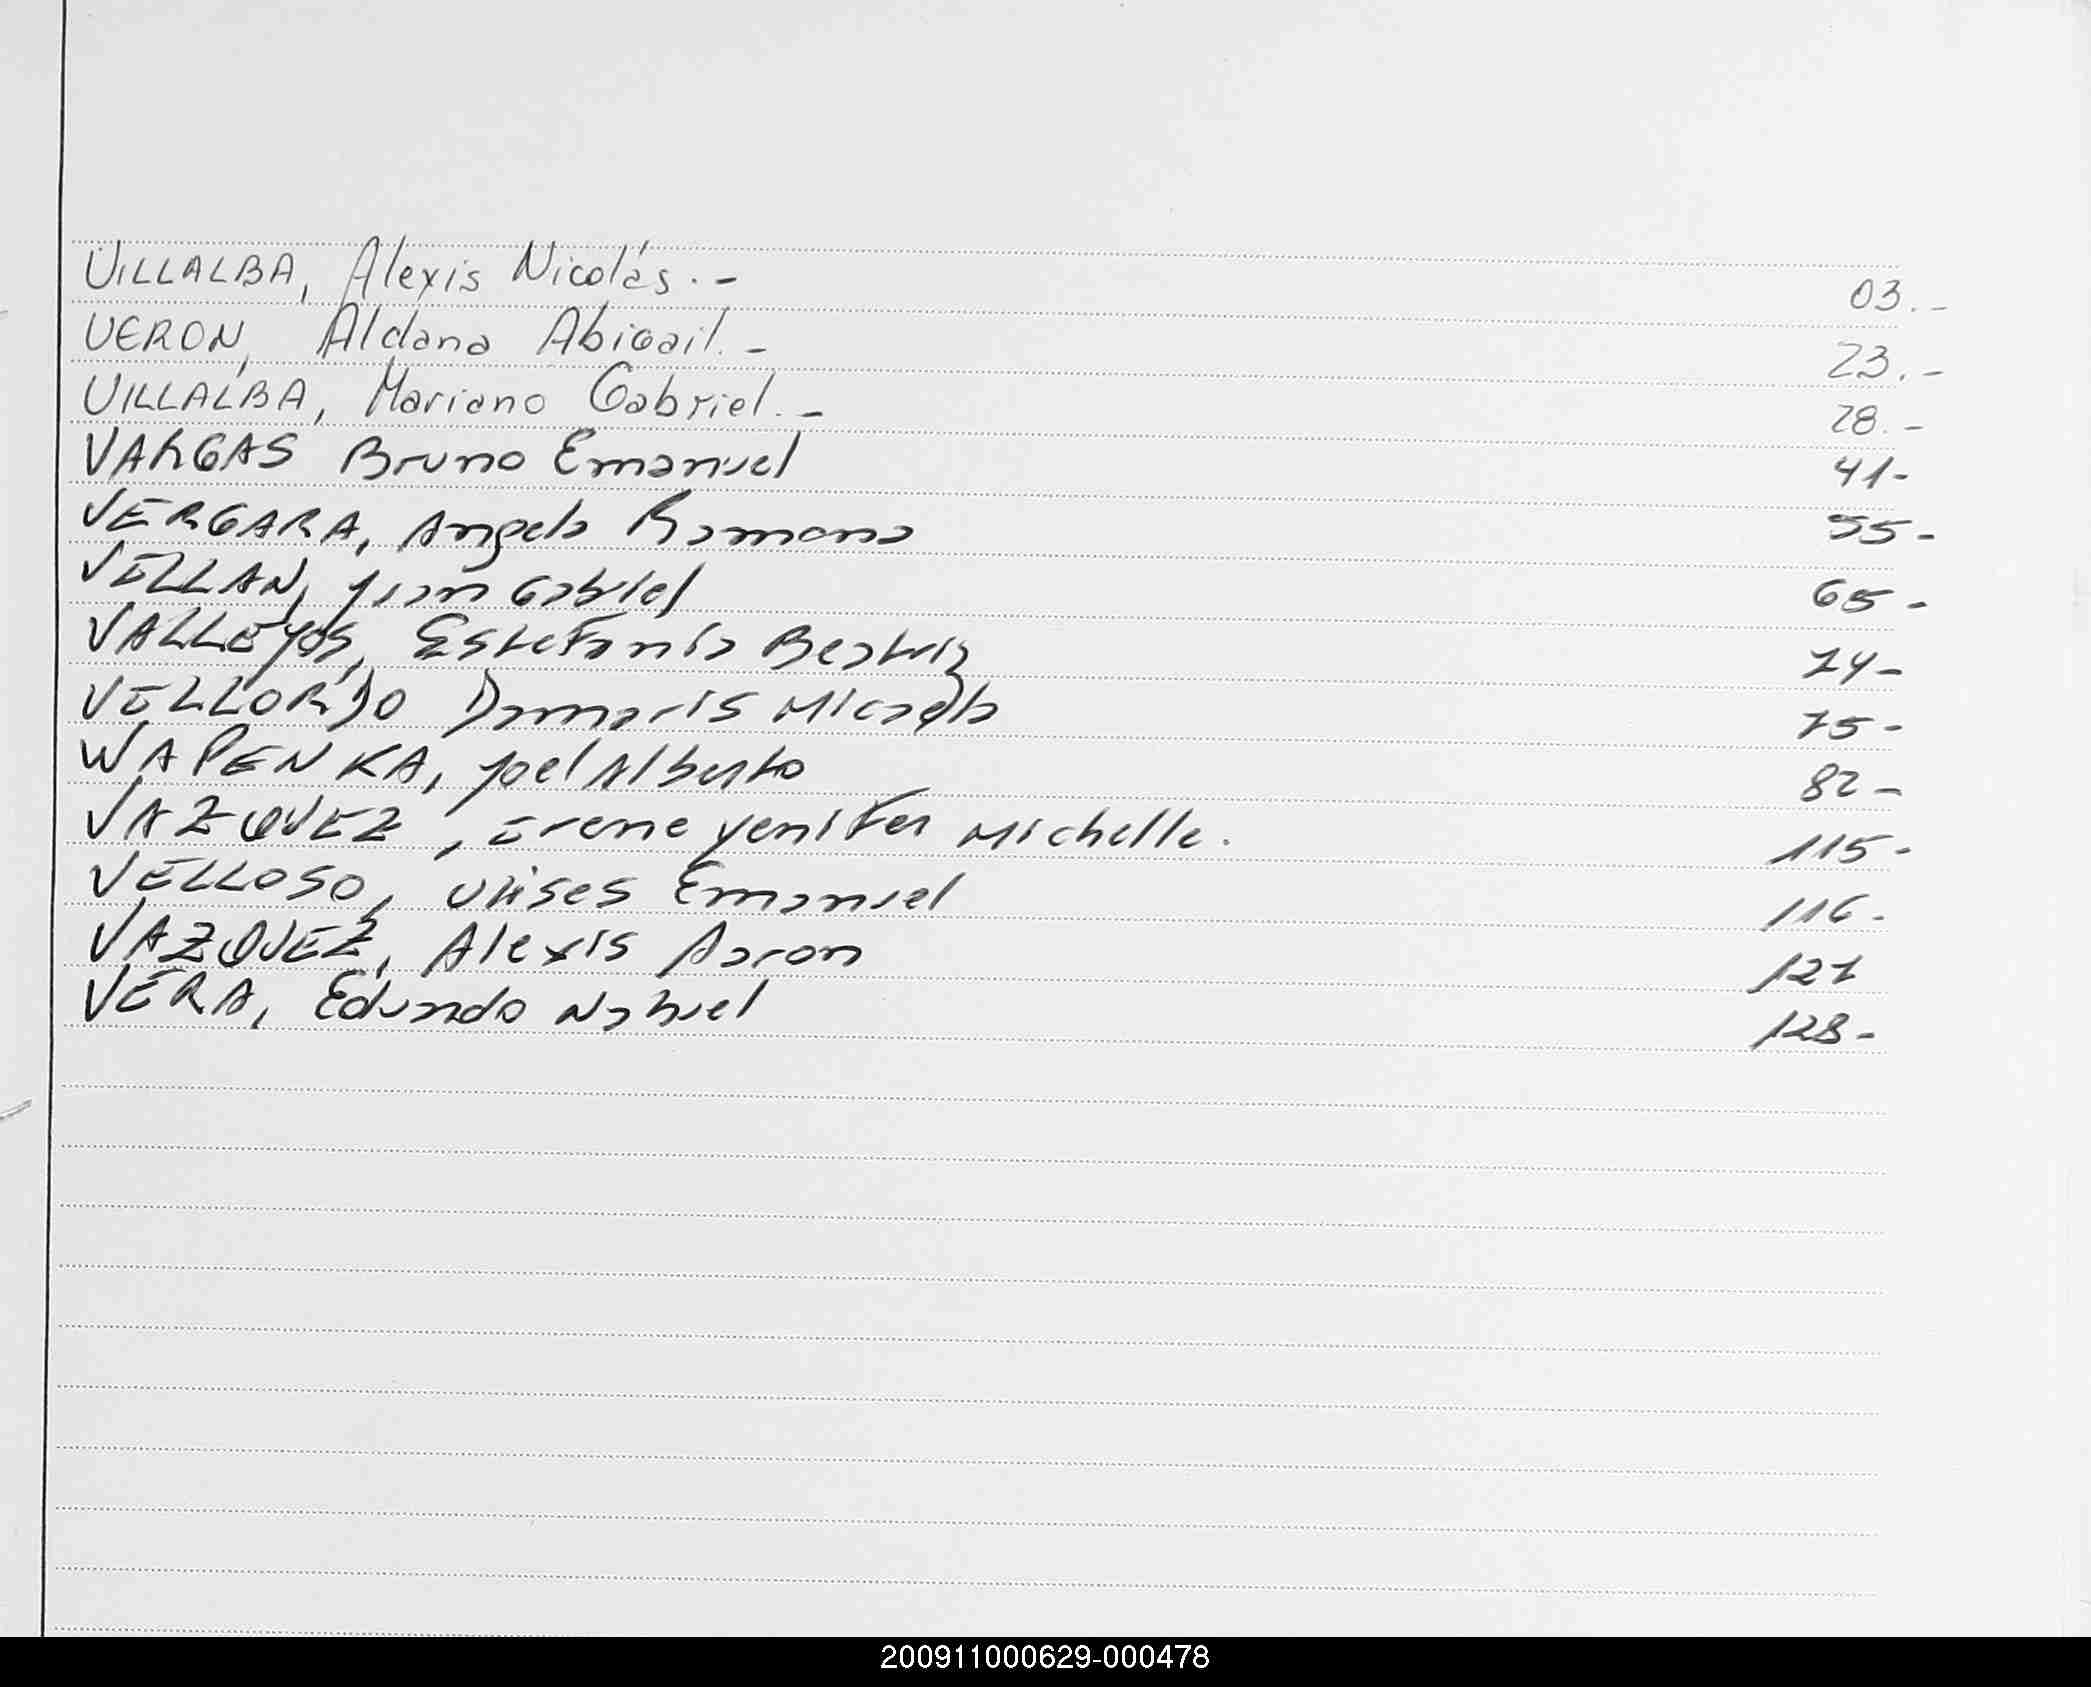 VILLALBA, Alexis Nicolás.- 03.-
VERON, Aldana Abigail.- 23.-
VILLALBA, Mariano Gabriel.- 28.-
VARGAS Bruno Emanuel 41-
VERGARA, Angela Ramona 55-
VILLAN, Juan Gabriel 65-
VALLEJOS, Estefania Beatriz 74-
VILLORDO Damaris Micaela 75-
WAPENKA, Joel Alberto 82-
VAZQUEZ, Irene Yenifer Michelle. 115-
VELLOSO, Ulises Emanuel 116-
VAZQUEZ, Alexis Aaron 121
VERA, Eduardo Nahuel 128-
200911000629-000478